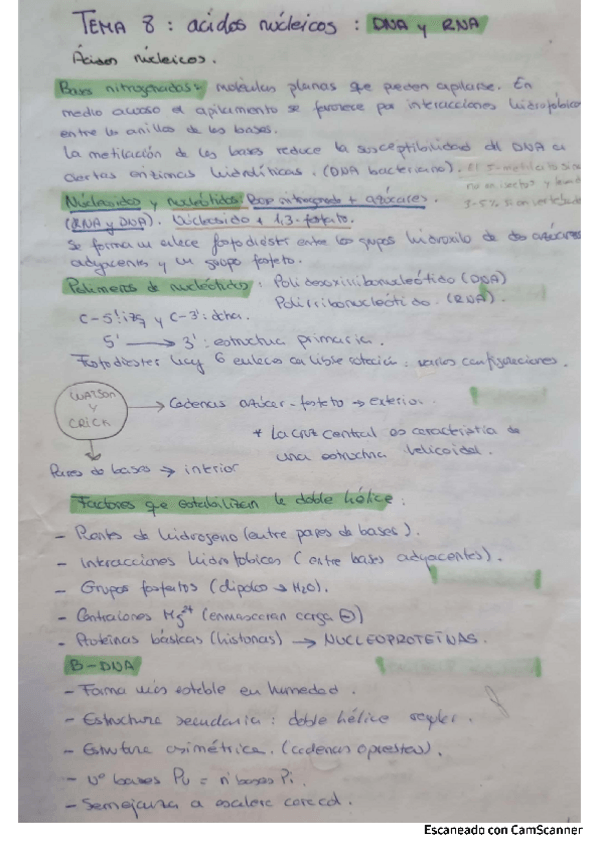 TEMA 8 : ácidos núcleicos : DNA y RNA
Ácidos núcleicos.
Bases nitrogenadas: moléculas planas que pueden apilarse. En
medio acuoso el apilamiento se favorece por interacciones hidrofóbicas
entre los anillos de las bases.
La metilación de las bases reduce la susceptibilidad del DNA a
ciertas enzimas hidrolíticas. (DNA bacteriano). El 5-metilcitosina
no en insectos y
3-5% si en vertebrados
Núcleosidos y nucleótidos: Base nitrogenada + azúcares.
(RNA y DNA). Núcleosido + 1,3-fosfato.
Se forma un enlace fosfodiéster entre los grupos hidroxilo de dos azúcares
adyacentes y un grupo fosfato.
Polímeros de nucleótidos : Polidesoxirribonucleótido (DNA)
Polirribonucleótido. (RNA).
C-5': izq y C-3': dcha.
5' → 3' : estructura primaria.
Fosfodiester hay 6 enlaces en libre rotación : varias configuraciones.
WATSON
Y
CRICK
→ Cadenas azúcar-fosfato → exterior.
* La cruz central es característica de
una estructura helicoidal.
Pares de bases → interior
Factores que estabilizan la doble hélice :
- Puentes de hidrógeno (entre pares de bases).
- Interacciones hidrofóbicas (entre bases adyacentes).
- Grupos fosfatos (dipolo → H2O).
- Contraiones Mg2+ (enmascaran carga ⊖)
- Proteínas básicas (histonas) → NUCLEOPROTEÍNAS.
B-DNA
- Forma más estable en humedad.
- Estructura secundaria : doble hélice regular.
- Estructura asimétrica. (cadenas opuestas).
- nº bases Pu = nº bases Pi.
- Semejanza a escalera caracol.
Escaneado con CamScanner